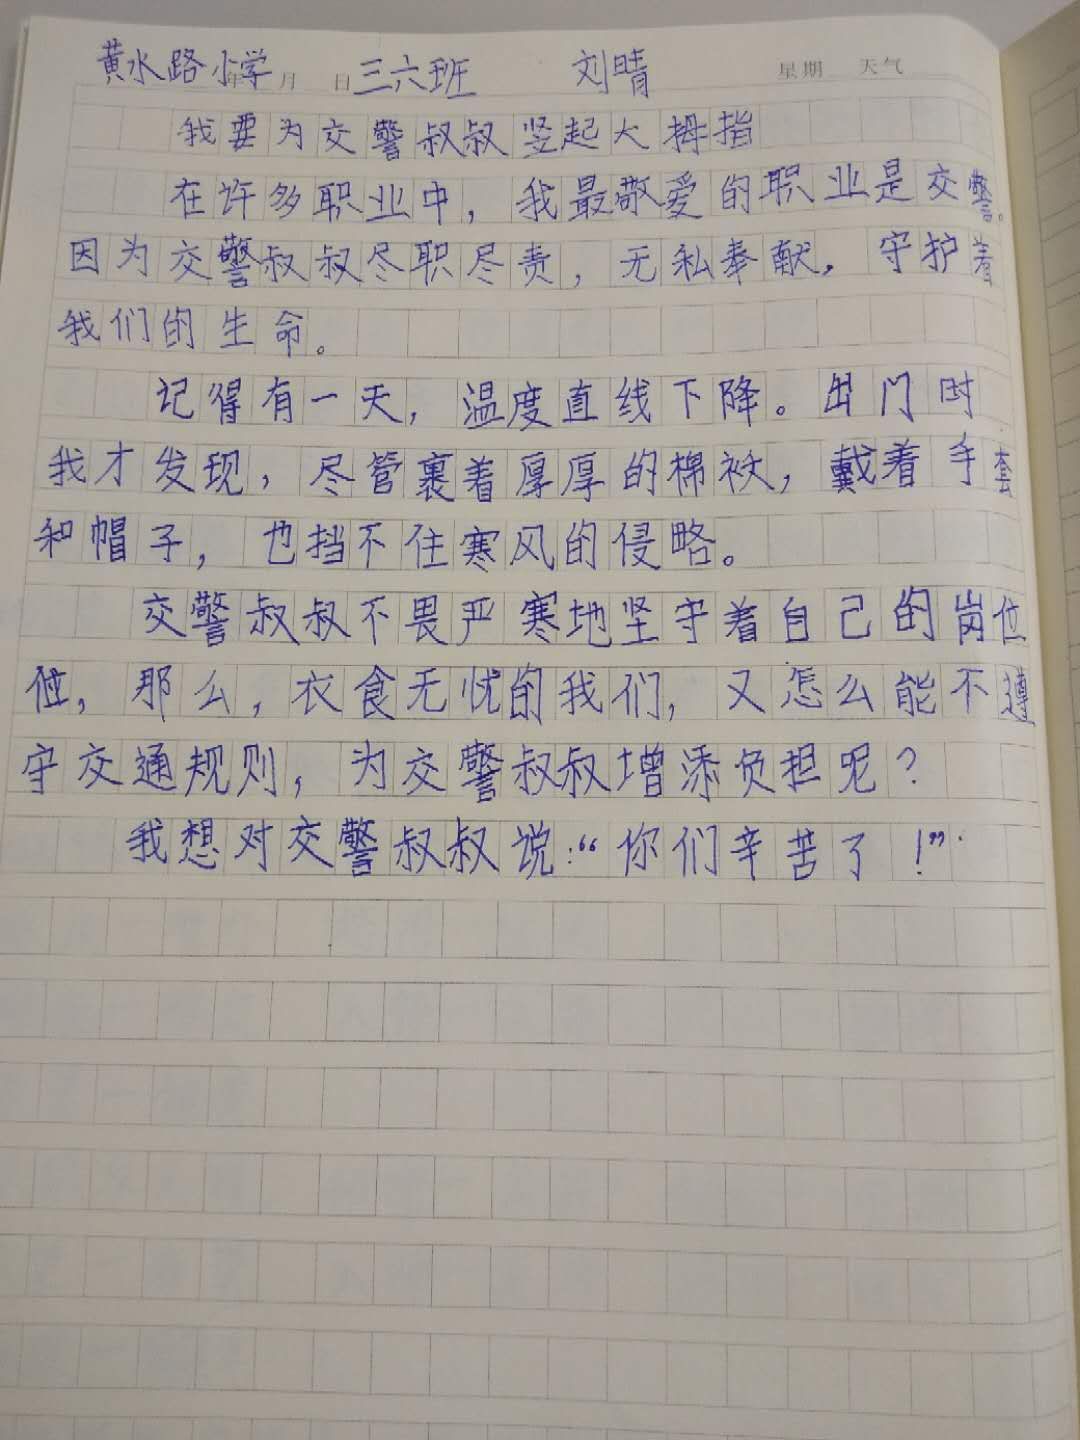 黄水路小学 年 月 日 三六班 刘晴 星期 天气
我要为交警叔叔竖起大拇指
在许多职业中，我最敬爱的职业是交警。
因为交警叔叔尽职尽责，无私奉献，守护着
我们的生命。
记得有一天，温度直线下降。出门时
我才发现，尽管裹着厚厚的棉袄，戴着手套
和帽子，也挡不住寒风的侵略。
交警叔叔不畏严寒地坚守着自己的岗位
位，那么，衣食无忧的我们，又怎么能不遵
守交通规则，为交警叔叔增添负担呢？
我想对交警叔叔说：“你们辛苦了！”